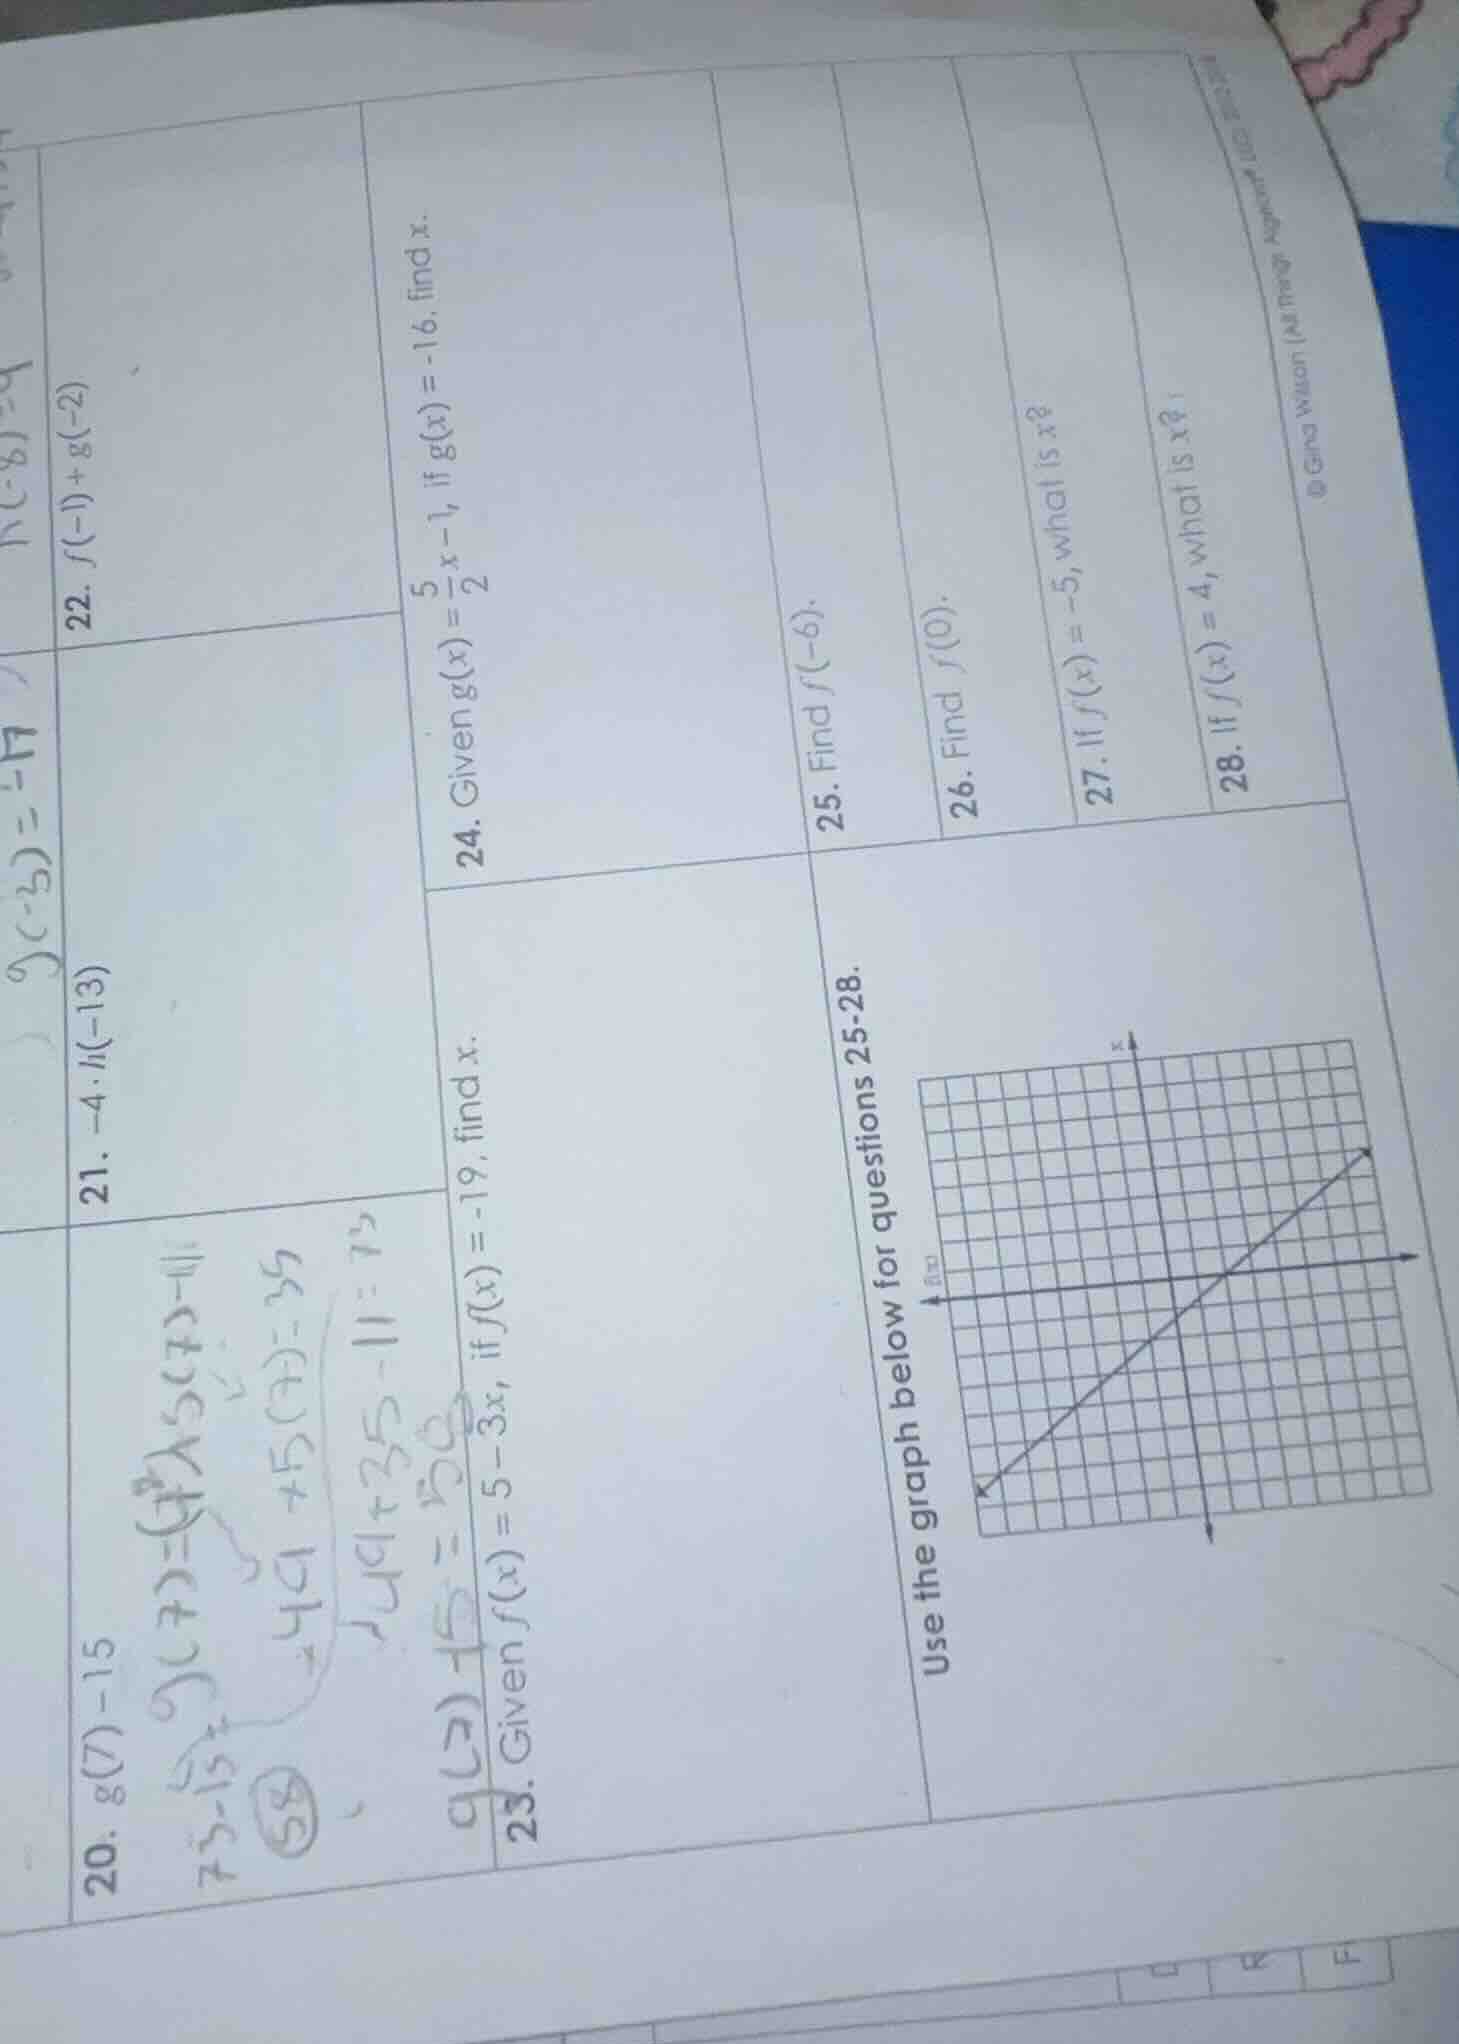 h(-8)=9
g(-3)=-17
20. g(7) – 15
g(7)=(7²)+5(7)-11
73-15=
=49+5(7)=35
58
49+35-11=73
21. –4 · h(–13)
22. f(–1) + g(–2)
23. Given f(x) = 5 – 3x, if f(x) = -19, find x.
24. Given g(x) = 5/2 x – 1, if g(x) = -16, find x.
Use the graph below for questions 25-28.
f(x)
x
25. Find f(–6).
26. Find f(0).
27. If f(x) = –5, what is x?
28. If f(x) = 4, what is x?
© Gina Wilson (All Things Algebra®